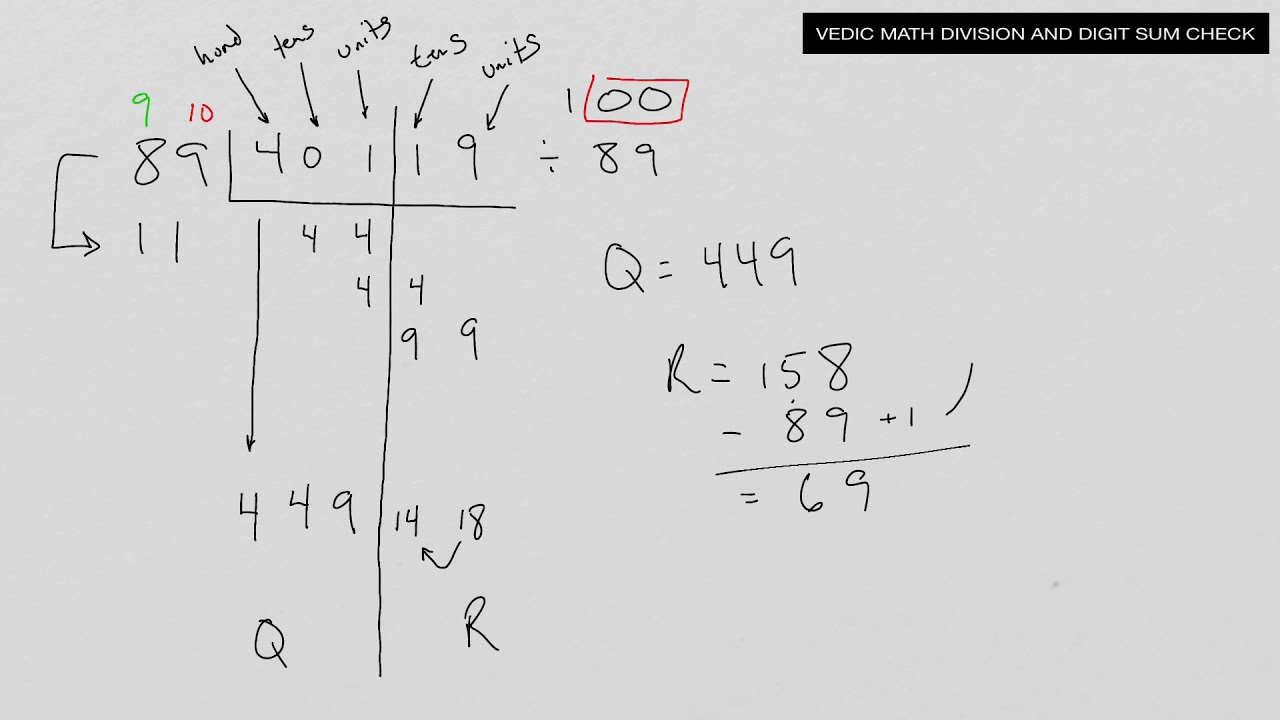 VEDIC MATH DIVISION AND DIGIT SUM CHECK
hund tens units tens units
9 10 1 00
89 401 19 ÷ 89
11 4 4
4 4
9 9
Q = 449
R = 158
- 89 +1
= 69
4 4 9 14 18
Q R